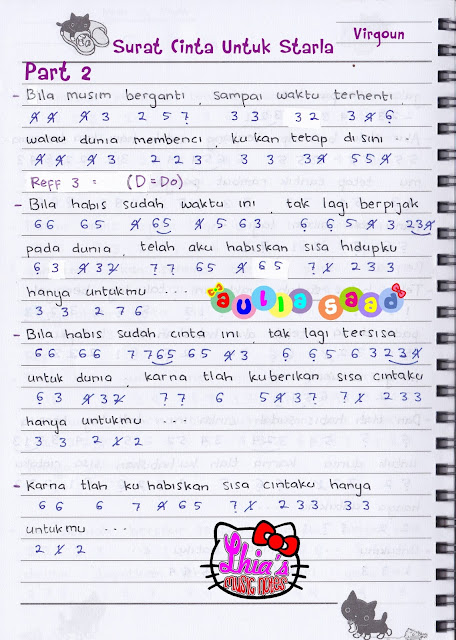 Surat Cinta Untuk Starla
Virgoun
Part 2
- Bila musim berganti, sampai waktu terhenti
4̸ 4̸ 4̸ 3 2 5 7̣ 3 3 3 2 3 4̸ 6̣
walau dunia membenci, ku kan tetap di sini ...
4̸ 4̸ 4̸ 3 2 2 3 3 3 3 4̸ 5 5 4̸
Reff 3 : (D = Do)
- Bila habis sudah waktu ini, tak lagi berpijak
6 6 6 5 4̸ 6 5 4̸ 5 6 3 6̣ 6̣ 5 4̸ 3 2 3 4̸
pada dunia, telah aku habiskan sisa hidupku
6̣ 3 4̸ 3 2̸ 7̣ 7̣ 6 5 4̸ 6 5 7̣ 1̸ 2 3 3
hanya untukmu ....
3 3 2 7̣ 6̣
aulia saad
- Bila habis sudah cinta ini, tak lagi tersisa
6 6 6 6 7 7 6 5 6 5 4̸ 3 6̣ 6̣ 5 6 3 2 3 4̸
untuk dunia, karna tlah kuberikan sisa cintaku
6̣ 3 4̸ 3 2̸ 7̣ 7̣ 6 5 4̸ 3 7̣ 7̣ 1̸ 2 3 3
hanya untukmu ...
3 3 2 1̸ 2
- Karna tlah ku habiskan sisa cintaku hanya
6 6 6 7 4̸ 6 5 7̣ 1̸ 2 3 3 3 3
untukmu ...
2 1̸ 2
Lhia's
MUSIC NOTES